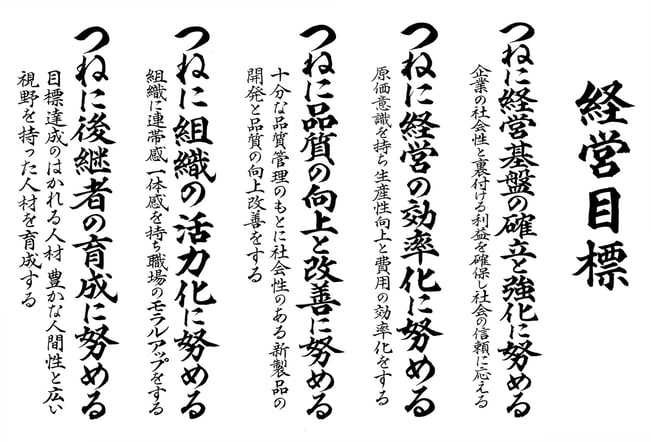 経営目標
つねに経営基盤の確立と強化に努める
企業の社会性と裏付ける利益を確保し社会の信頼に応える
つねに経営の効率化に努める
原価意識を持ち生産性向上と費用の効率化をする
つねに品質の向上と改善に努める
十分な品質管理のもとに社会性のある新製品の
開発と品質の向上改善をする
つねに組織の活力化に努める
組織に連帯感一体感を持ち職場のモラルアップをする
つねに後継者の育成に努める
目標達成のはかれる人材 豊かな人間性と広い
視野を持った人材を育成する